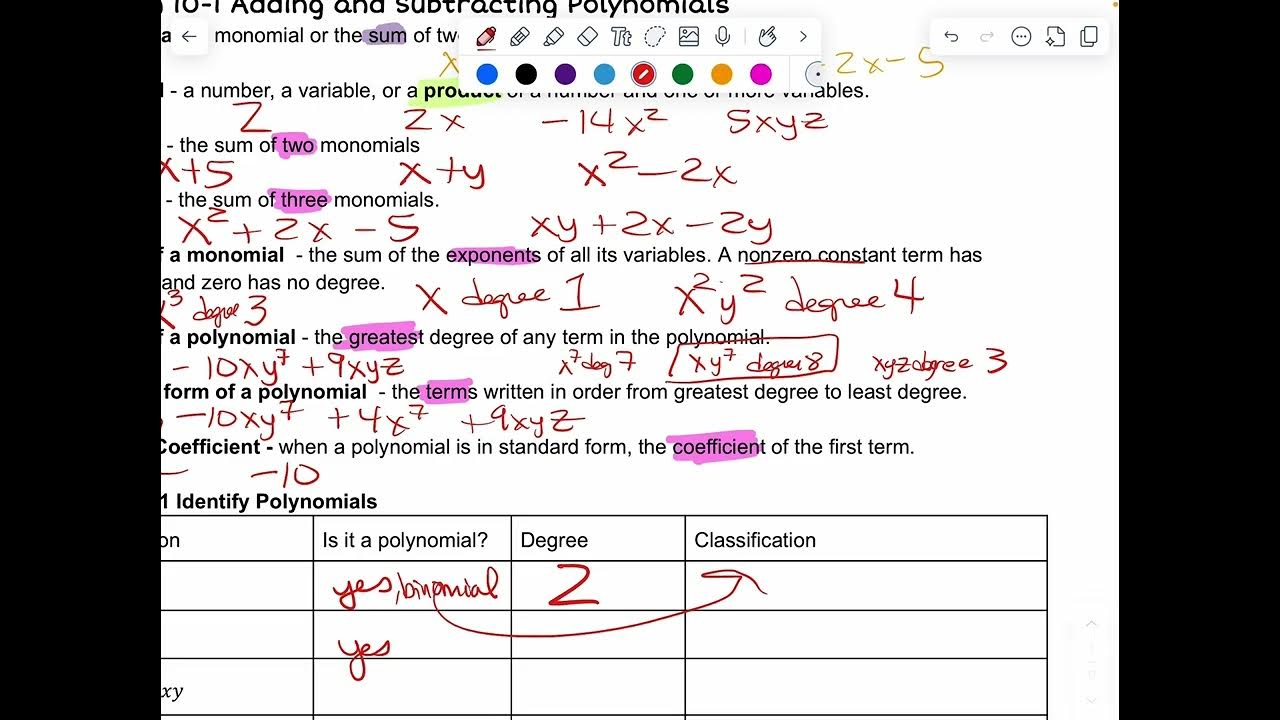 10-1 Adding and Subtracting Polynomials
a monomial or the sum of tw
x 2x - 5
l - a number, a variable, or a product of a number and one or more variables.
2 2x -14x² 5xyz
- the sum of two monomials
x+5 x+y x²-2x
- the sum of three monomials.
x²+2x-5 xy+2x-2y
f a monomial - the sum of the exponents of all its variables. A nonzero constant term has
and zero has no degree.
x³ degree 3 x degree 1 x²y² degree 4
f a polynomial - the greatest degree of any term in the polynomial.
-10xy⁷+9xyz x⁷ deg 7 xy⁷ degree 8 xyz degree 3
form of a polynomial - the terms written in order from greatest degree to least degree.
-10xy⁷ +4x⁷ +9xyz
Coefficient - when a polynomial is in standard form, the coefficient of the first term.
-10
1 Identify Polynomials
on Is it a polynomial? Degree Classification
yes, binomial 2
yes
xy